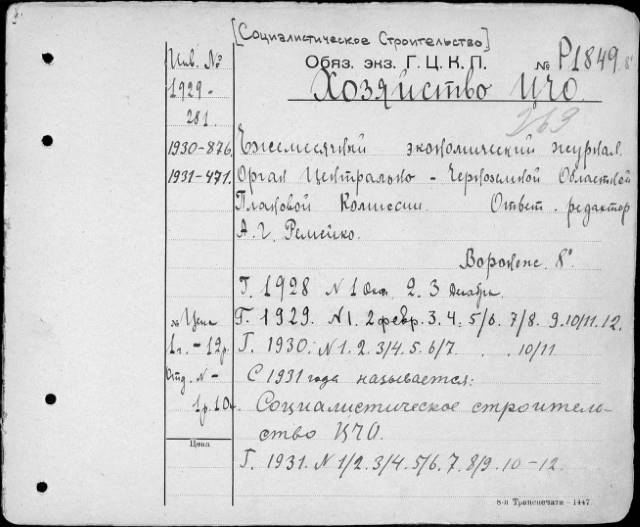 [Социалистическое Строительство]
Инв. № Обяз. экз. Г. Ц. К. П. № Р1849 8°
1929- Хозяйство ЦЧО
281.
1930-876. Ежемесячный экономический журнал.
1931-471. Орган Центрально - Черноземной Областной
Плановой Комиссии. Ответ. редактор
А. Г. Ремейко.
Воронеж. 8°
Г. 1928 N 1 Окт. 2. 3 Декабрь
№ Цена Г. 1929. N 1. 2 февр. 3. 4. 5/6. 7/8. 9. 10/11. 12.
1 г. - 12 р. Г. 1930. N 1. 2. 3/4. 5. 6/7 . . 10/11
Отд. N - С 1931 года называется:
1 р. 10 к. Социалистическое строитель-
ство ЦЧО.
Цена
Г. 1931. N 1/2. 3/4. 5/6. 7. 8/9. 10-12.
8-я Транспечати - 1447.